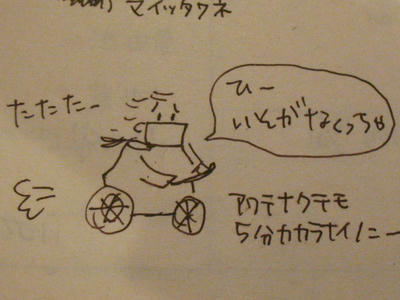 マイッタワネ
たたたー
ひー
いそがなくっちゃ
アワテナクテモ
5分カカラナイノニー